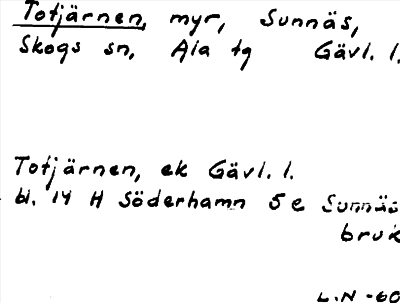 Totjärnen, myr, Sunnäs,
Skogs sn, Ala tg Gävl. l.
Totjärnen, ek Gävl. l.
bl. 14 H Söderhamn 5 e Sunnäs
bruk
L.N -60